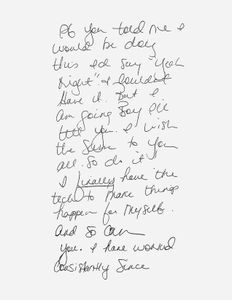 If you told me I
would be doing
this I'd say "Yeah
Right" I couldn't
Have it. But I
am going say I'll
tell you. I wish
the same to you
all. So do it
I finally have the
tech to make things
happen for myself.
And so can
you. I have worked
consistently since